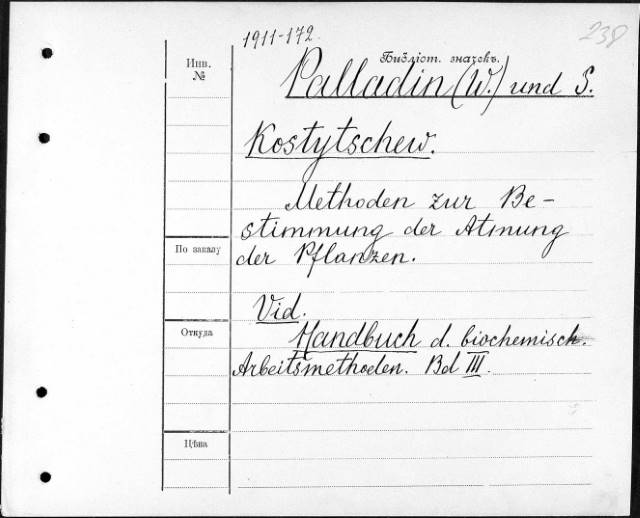 1911-172.
238
Инв.
№
Библіот. значекъ.
Palladin (W.) und S.
Kostytschew.
Methoden zur Be-
stimmung der Atmung
der Pflanzen.
По заказу
Vid.
Откуда
Handbuch d. biochemisch.
Arbeitsmethoden. Bd III.
Цѣна